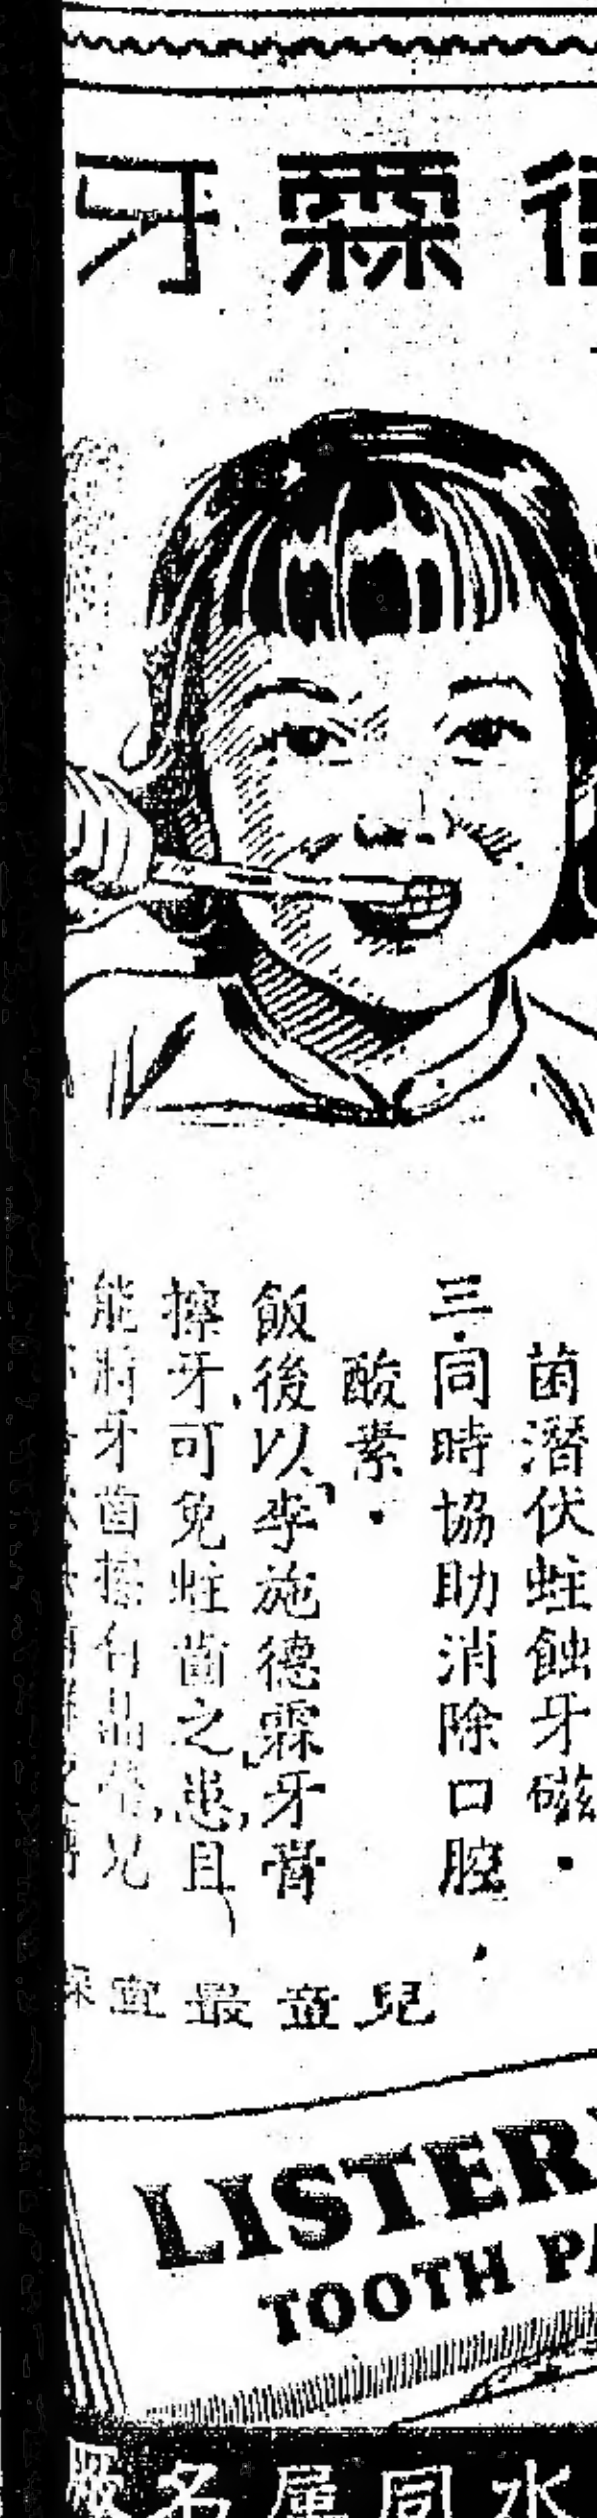 德霖牙
菌潛伏蛀蝕牙磁・
三・同時協助消除口腔
酸素・
飯後以「李施德霖」牙膏
擦牙,可免蛀齒之患,且
能將牙齒擦白晶瑩,兒
兒童最宜採
LISTER
TOOTH PA
水同屬名廠